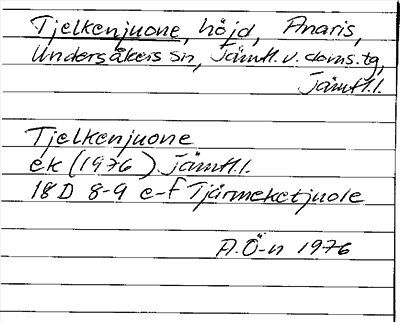 Tjelkenjuone, höjd, Anaris,
Undersåkers sn, Jämtl. v. doms.tg,
Jämtl.l.
Tjelkenjuone
ek (1976) Jämtl.l.
18D 8-9 e-f Tjärmeketjuole
A.Ö-n 1976